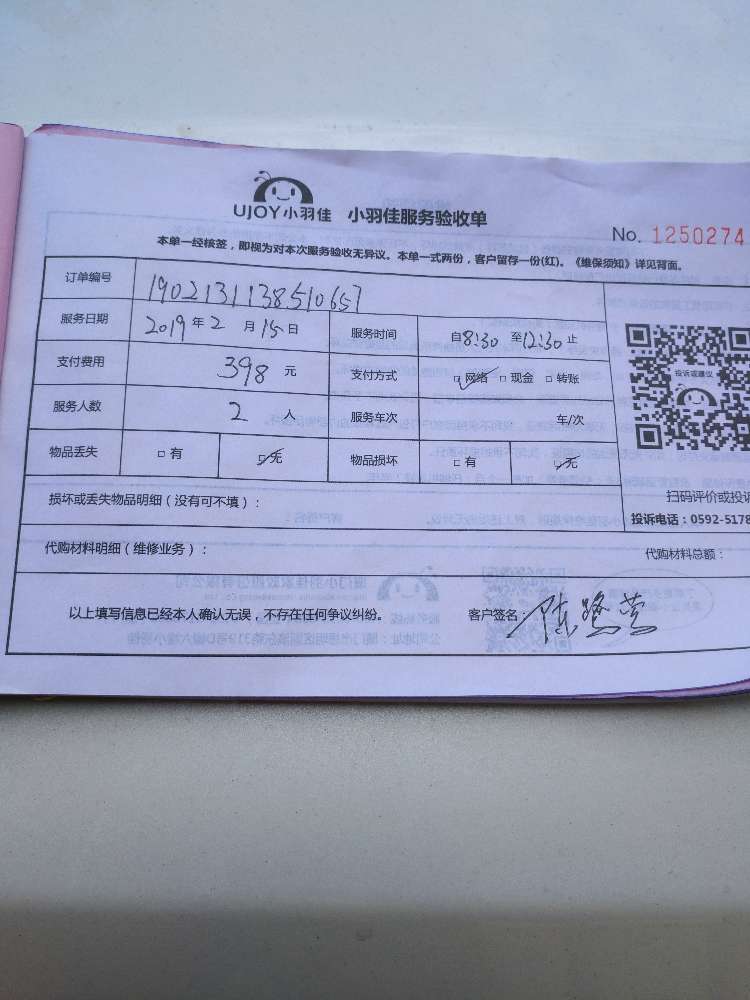 UJOY小羽佳 小羽佳服务验收单
No. 1250274
本单一经核签，即视为对本次服务验收无异议。本单一式两份，客户留存一份(红)。《维保须知》详见背面。
订单编号 1902131138510657
服务日期 2019年2月15日 服务时间 自8:30至12:30止
支付费用 398元 支付方式 ☑网络 □现金 □转账
服务人数 2人 服务车次 车/次
物品丢失 □有 ☑无 物品损坏 □有 ☑无
投诉或建议
扫码评价或投诉
损坏或丢失物品明细（没有可不填）：
投诉电话：0592-5178
代购材料明细（维修业务）： 代购材料总额：
以上填写信息已经本人确认无误，不存在任何争议纠纷。 客户签名：